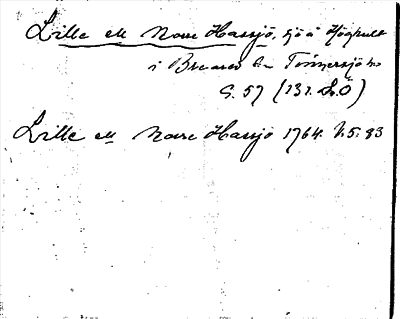 Lille el Norre Harsjö, sjö å Höghult
i Breared sn Tönnersjö hd
G. 57 (131. LÖ)
Lille el Norre Harsjö 1764. N.5. 83